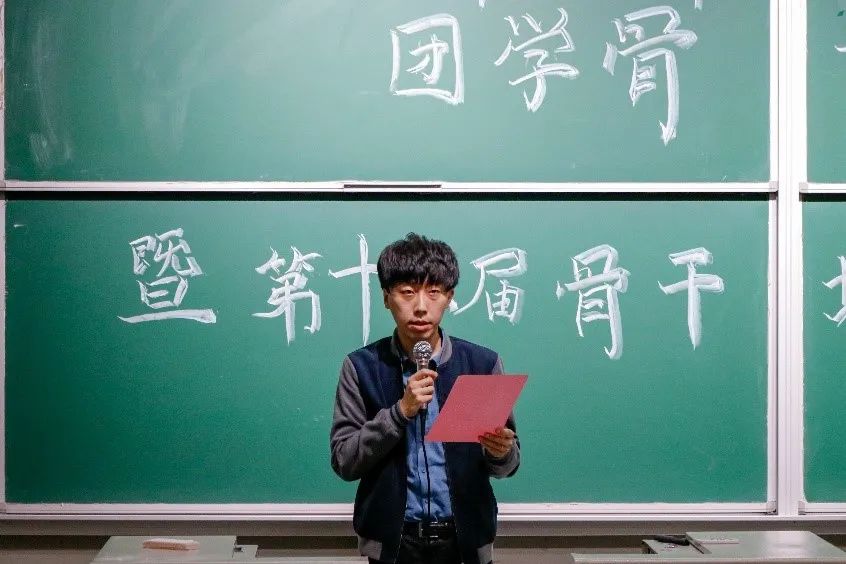 团学骨
暨第十届骨干